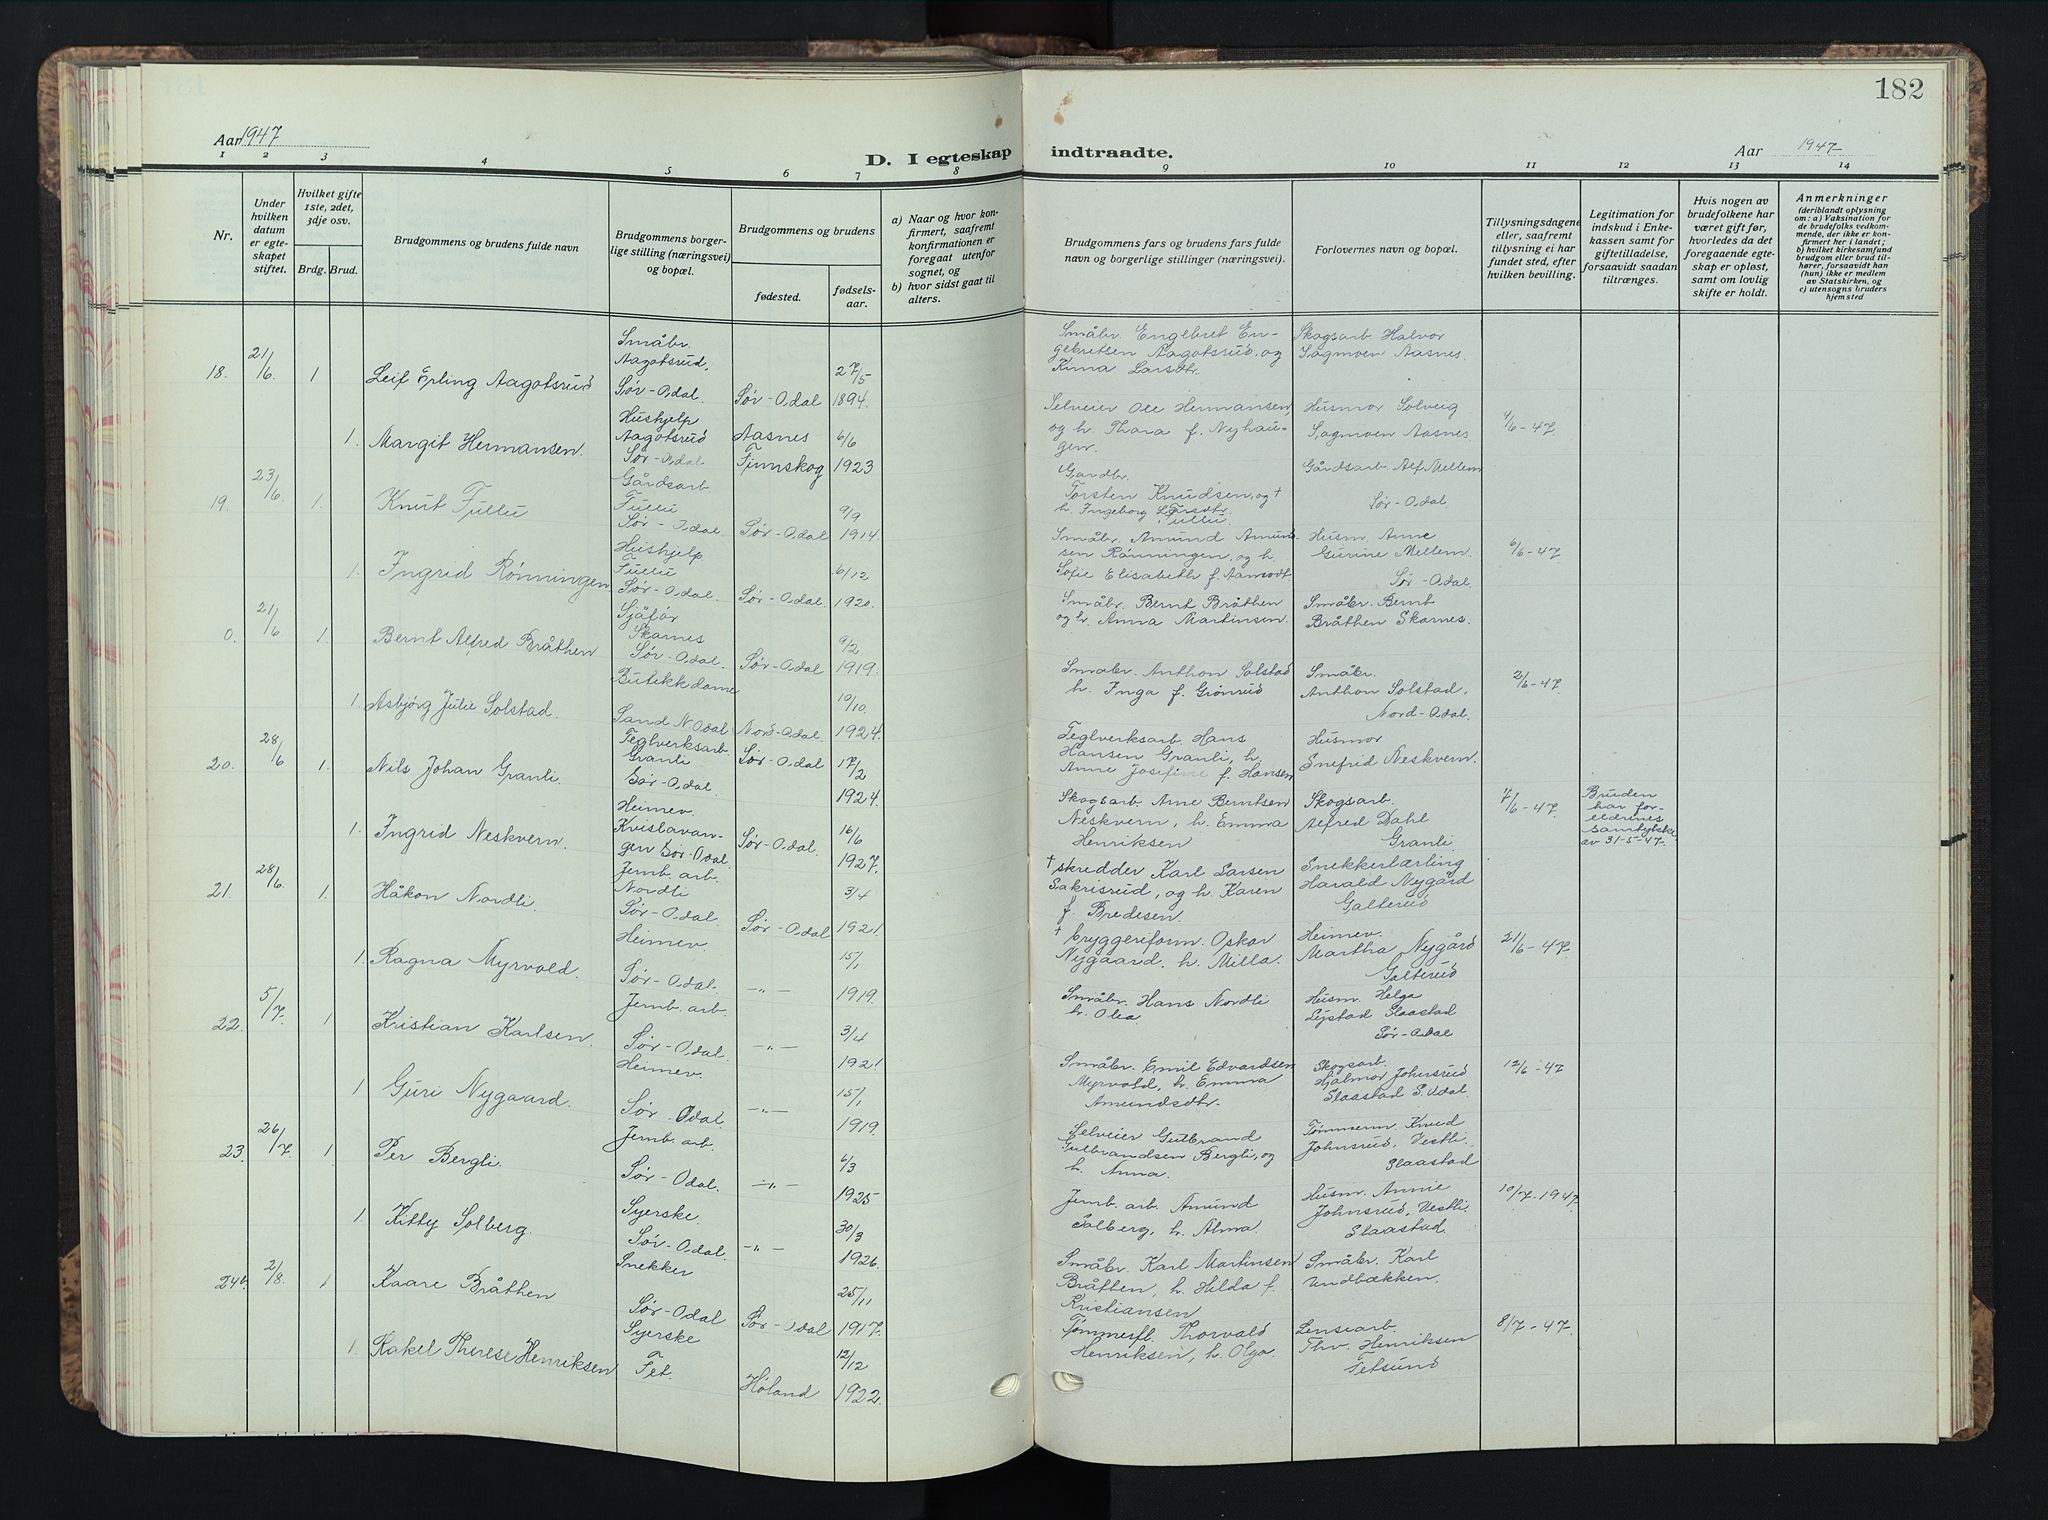 182
Aar 1947
D. I egteskap indtraadte.
Aar 1947
1 2 3 4 5 6 7 8 9 10 11 12 13 14
Nr.
Under hvilken datum er egteskapet stiftet.
Hvilket gifte 1ste, 2det, 3dje osv.
Brdg. Brud.
Brudgommens og brudens fulde navn
Brudgommens borgerlige stilling (næringsvei) og bopæl.
Brudgommens og brudens
fødested.
fødselsaar.
a) Naar og hvor konfirmert, saafremt konfirmationen er foregaat utenfor sognet, og
b) hvor sidst gaat til alters.
Brudgommens fars og brudens fars fulde navn og borgerlige stillinger (næringsvei).
Forlovernes navn og bopæl.
Tillysningsdagene eller, saafremt tillysning ei har fundet sted, efter hvilken bevilling.
Legitimation for indskud i Enkekassen samt for giftetilladelse, forsaavidt saadan tiltrænges.
Hvis nogen av brudefolkene har været gift før, hvorledes da det foregaaende egteskap er opløst, samt om lovlig skifte er holdt.
Anmerkninger
(deriblandt oplysning om: a) Vaksination for de brudefolks vedkommende, der ikke er konfirmert her i landet;
b) hvilket kirkesamfund brudgom eller brud tilhører, forsaavidt han (hun) ikke er medlem av Statskirken, og
c) utensogns bruders hjemsted
18. 21/6 1 Leif Erling Aagotsrud
Småbr. Aagotsrud, Sør-Odal.
Sør-Odal
27/5 1894.
Småbr. Engebret Engebretsen Aagotsrud, og Kima Larsdtr.
Skogsarb. Halvor Sagmoen Aasnes.
1. Margit Hermansen.
Hushjelp Aagotsrud Sør-Odal
Aasnes Finnskog
6/6 1923
Selveier Ole Hermansen, og h. Thara f. Nyhaugen.
Husmor Solveig Sagmoen Aasnes.
4/6-47.
19. 23/6. 1. Knut Fullu
Gårdsarb Fullu Sør-Odal
Sør-Odal
9/9 1914.
Gardbr. Torsten Knudsen, og † h. Ingeborg Larsdtr. Fullu.
Gårdsarb. Alf Mellem Sør-Odal.
1. Ingrid Rønningen
Hushjelp Fullu Sør-Odal.
Sør-Odal.
6/12 1920.
Småbr. Amund Amundsen Rønningen, og h Sofie Elisabeth f. Aamodt.
Husm. Anne Gurine Mellem. Sør-Odal.
6/6-47.
0. 21/6 1. Bernt Alfred Bråthen
Sjåfør Skarnes Sør-Odal.
Sør-Odal
9/2 1919.
Småbr. Bernt Bråthen og h. Anna Martinsen.
Småbr. Bernt Bråthen Skarnes.
1. Asbjørg Julie Solstad.
Butekkdame Sand N Odal
Nord-Odal.
10/10. 1924.
Småbr. Anthon Solstad h. Inga f. Grønrud
Småbr. Anthon Solstad, Nord-Odal.
2/6-47.
20. 28/6 1. Nils Johan Granli.
Teglverksarb. Granli Sør-Odal.
Sør-Odal
17/2 1924.
Teglverksarb. Hans Hansen Granli, h. Anne Josefine f. Hansen
Husmor Snefrid Neskvern.
1. Ingrid Neskvern.
Heimev. Kvislavangen Sør-Odal.
Sør-Odal.
16/6 1927.
Skogsarb. Arne Berntsen Neskvern, h. Emma Henriksen
Skogsarb. Alfred Dahl Granli.
7/6-47.
Bruden har foreldrenes samtykke av 31-5-47.
21. 28/6. 1. Håkon Nordli.
Jernb. arb. Nordli Sør-Odal.
Sør-Odal
3/4 1921.
† skredder Karl Larsen Sakrisrud, og h. Karen f. Bredesen.
Snekkerlærling Harald Nygård Galterud
1. Ragna Myrvold.
Heimev. Sør-Odal.
-"-
15/1 1919.
† bryggeriform. Oskar Nygaard, h. Milla.
Heimev. Martha Nygård Galterud
21/6-47
22. 5/7. 1 Kristian Karlsen.
Jernb. arb. Sør-Odal.
-"-
3/4 1921
Småbr. Hans Nordli h. Olea.
Husm. Helga Lystad Slaastad Sør-Odal
1 Guri Nygaard.
Heimev. Sør-Odal.
-"-
15/1 1919.
Småbr. Emil Edvardsen Myrvold, h. Emma Amundsdtr.
Skogsarb. Hjalmar Johnsrud Slaastad S. Odal.
12/6-47
23. 26/7. 1 Per Bergli.
Jernb. arb. Sør-Odal.
-"-
6/3 1925
Selveier Gulbrand Gulbrandsen Bergli, og h. Anna.
Tømmerm. Knud Johnsrud, Vestli. Slaastad
1. Kitty Solberg.
Syerske. Sør-Odal.
-"-
30/3 1926.
Jernb. arb. Amund Solberg, h. Alma.
Husm. Annie Johnsrud, Vestli. Slaastad.
10/7-1947.
24. 2/8. 1 Kaare Bråthen
Snekker Sør-Odal
Sør-Odal
25/11 1917.
Småbr. Karl Martinsen Bråthen, h. Hilda f. Kristiansen
Småbr. Karl Undbækken.
1. Rakel Therese Henriksen
Syerske Fet.
Høland
12/12 1922.
Tømmerfl. Thorvald Henriksen, h. Olga.
Lensearb. Thv. Henriksen Fetsund
8/7-47.